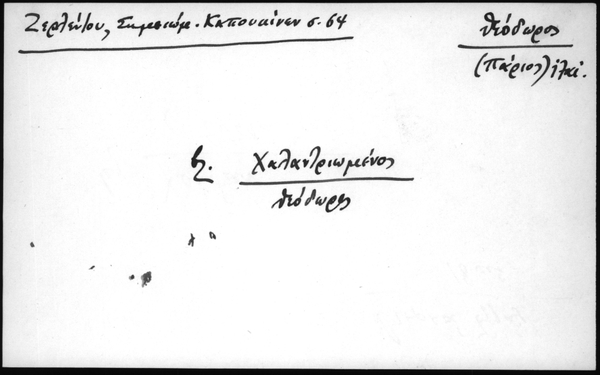 Ζερλέντου, Σημειώμ. Καπουκίνων σ. 64
Θεόδωρος
(Πάριος)
βλ. Χαλαντριωμένος
Θεόδωρος